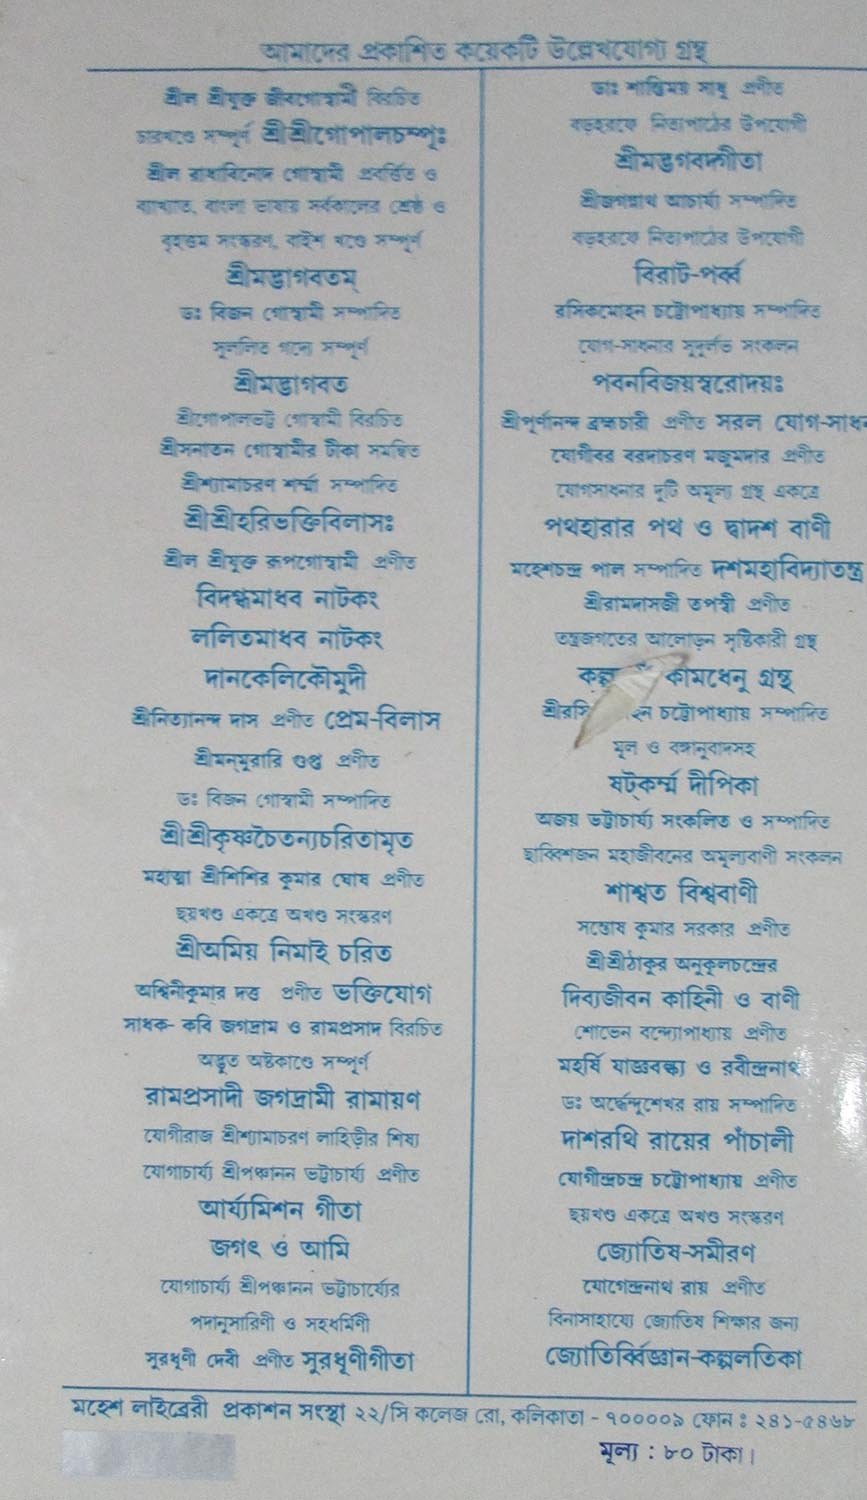 আমাদের প্রকাশিত কয়েকটি উল্লেখযোগ্য গ্রন্থ
শ্রীল শ্রীযুক্ত জীবগোস্বামী বিরচিত
চারখণ্ডে সম্পূর্ণ শ্রীশ্রীগোপালচম্পূঃ
শ্রীল রাধাবিনোদ গোস্বামী প্রবর্ত্তিত ও
ব্যাখ্যাত, বাংলা ভাষায় সর্বকালের শ্রেষ্ঠ ও
বৃহত্তম সংস্করণ, বাইশ খণ্ডে সম্পূর্ণ
শ্রীমদ্ভাগবতম্
ডঃ বিজন গোস্বামী সম্পাদিত
সুললিত গদ্যে সম্পূর্ণ
শ্রীমদ্ভাগবত
শ্রীগোপালভট্ট গোস্বামী বিরচিত
শ্রীসনাতন গোস্বামীর টীকা সমন্বিত
শ্রীশ্যামাচরণ শর্ম্মা সম্পাদিত
শ্রীশ্রীহরিভক্তিবিলাসঃ
শ্রীল শ্রীযুক্ত রূপগোস্বামী প্রণীত
বিদগ্ধমাধব নাটকং
ললিতমাধব নাটকং
দানকেলিকৌমূদী
শ্রীনিত্যানন্দ দাস প্রণীত প্রেম-বিলাস
শ্রীমন্‌মুরারি গুপ্ত প্রণীত
ডঃ বিজন গোস্বামী সম্পাদিত
শ্রীশ্রীকৃষ্ণচৈতন্যচরিতামৃত
মহাত্মা শ্রীশিশির কুমার ঘোষ প্রণীত
ছয়খণ্ড একত্রে অখণ্ড সংস্করণ
শ্রীঅমিয় নিমাই চরিত
অশ্বিনীকুমার দত্ত প্রণীত ভক্তিযোগ
সাধক- কবি জগদ্রাম ও রামপ্রসাদ বিরচিত
অদ্ভুত অষ্টকাণ্ডে সম্পূর্ণ
রামপ্রসাদী জগদ্রামী রামায়ণ
যোগীরাজ শ্রীশ্যামাচরণ লাহিড়ীর শিষ্য
যোগাচার্য্য শ্রীপঞ্চানন ভট্টাচার্য্য প্রণীত
আর্য্যমিশন গীতা
জগৎ ও আমি
যোগাচার্য্য শ্রীপঞ্চানন ভট্টাচার্য্যের
পদানুসারিণী ও সহধর্মিণী
সুরধূণী দেবী প্রণীত সুরধূণীগীতা
ডাঃ শান্তিময় সাধু প্রণীত
বড়হরফে নিত্যপাঠের উপযোগী
শ্রীমদ্ভগবদ্গীতা
শ্রীজগন্নাথ আচার্য্য সম্পাদিত
বড়হরফে নিত্যপাঠের উপযোগী
বিরাট-পর্ব্ব
রসিকমোহন চট্টোপাধ্যায় সম্পাদিত
যোগ-সাধনার সুদুর্লভ সংকলন
পবনবিজয়স্বরোদয়ঃ
শ্রীপূর্ণানন্দ ব্রহ্মচারী প্রণীত সরল যোগ-সাধন
যোগীবর বরদাচরণ মজুমদার প্রণীত
যোগসাধনার দুটি অমূল্য গ্রন্থ একত্রে
পথহারার পথ ও দ্বাদশ বাণী
মহেশচন্দ্র পাল সম্পাদিত দশমহাবিদ্যাতন্ত্র
শ্রীরামদাসজী তপস্বী প্রণীত
তন্ত্রজগতের আলোড়ন সৃষ্টিকারী গ্রন্থ
কামধেনু গ্রন্থ
চট্টোপাধ্যায় সম্পাদিত
মূল ও বঙ্গানুবাদসহ
ষট্‌কর্ম্ম দীপিকা
অজয় ভট্টাচার্য্য সংকলিত ও সম্পাদিত
ছাব্বিশজন মহাজীবনের অমূল্যবাণী সংকলন
শাশ্বত বিশ্ববাণী
সন্তোষ কুমার সরকার প্রণীত
শ্রীশ্রীঠাকুর অনুকূলচন্দ্রের
দিব্যজীবন কাহিনী ও বাণী
শোভেন বন্দ্যোপাধ্যায় প্রণীত
মহর্ষি যাজ্ঞবল্ক্য ও রবীন্দ্রনাথ
ডঃ অর্দ্ধেন্দুশেখর রায় সম্পাদিত
দাশরথি রায়ের পাঁচালী
যোগীন্দ্রচন্দ্র চট্টোপাধ্যায় প্রণীত
ছয়খণ্ড একত্রে অখণ্ড সংস্করণ
জ্যোতিষ-সমীরণ
যোগেন্দ্রনাথ রায় প্রণীত
বিনাসাহায্যে জ্যোতিষ শিক্ষার জন্য
জ্যোতির্ব্বিজ্ঞান-কল্পলতিকা
মহেশ লাইব্রেরী প্রকাশন সংস্থা ২২/সি কলেজ রো, কলিকাতা - ৭০০০০৯ ফোন : ২৪১-৫৪৬৮
মূল্য : ৮০ টাকা।